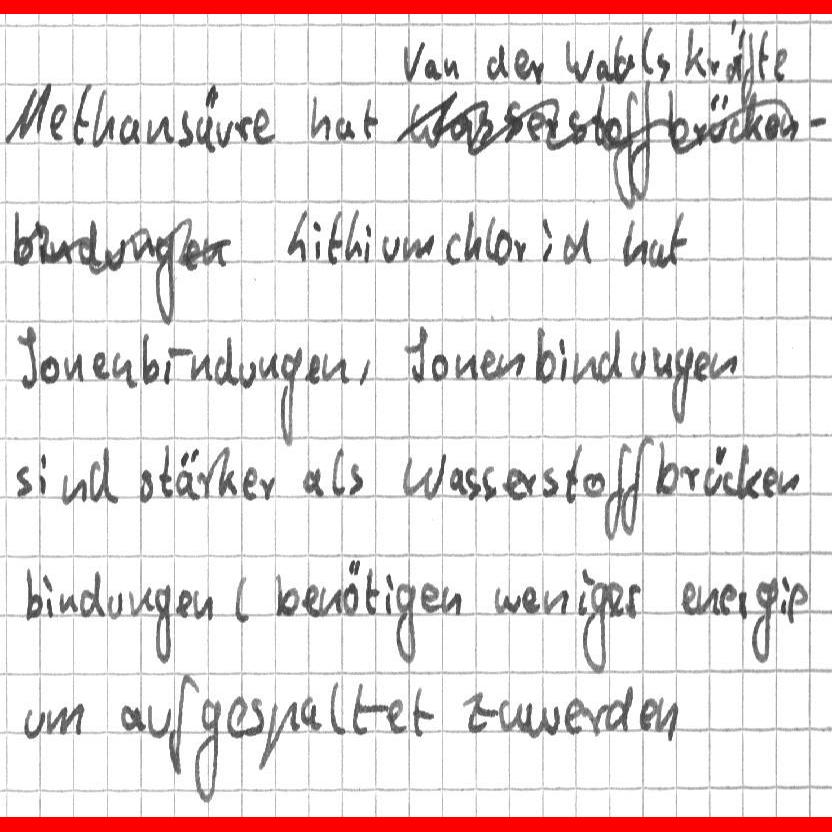 Van der Waals kräfte
Methansäure hat Wasserstoffbrücken-
bindungen Lithiumchlorid hat
Ionenbindungen, Ionenbindungen
sind stärker als Wasserstoffbrücken
bindungen ( benötigen weniger energie
um aufgespaltet zuwerden